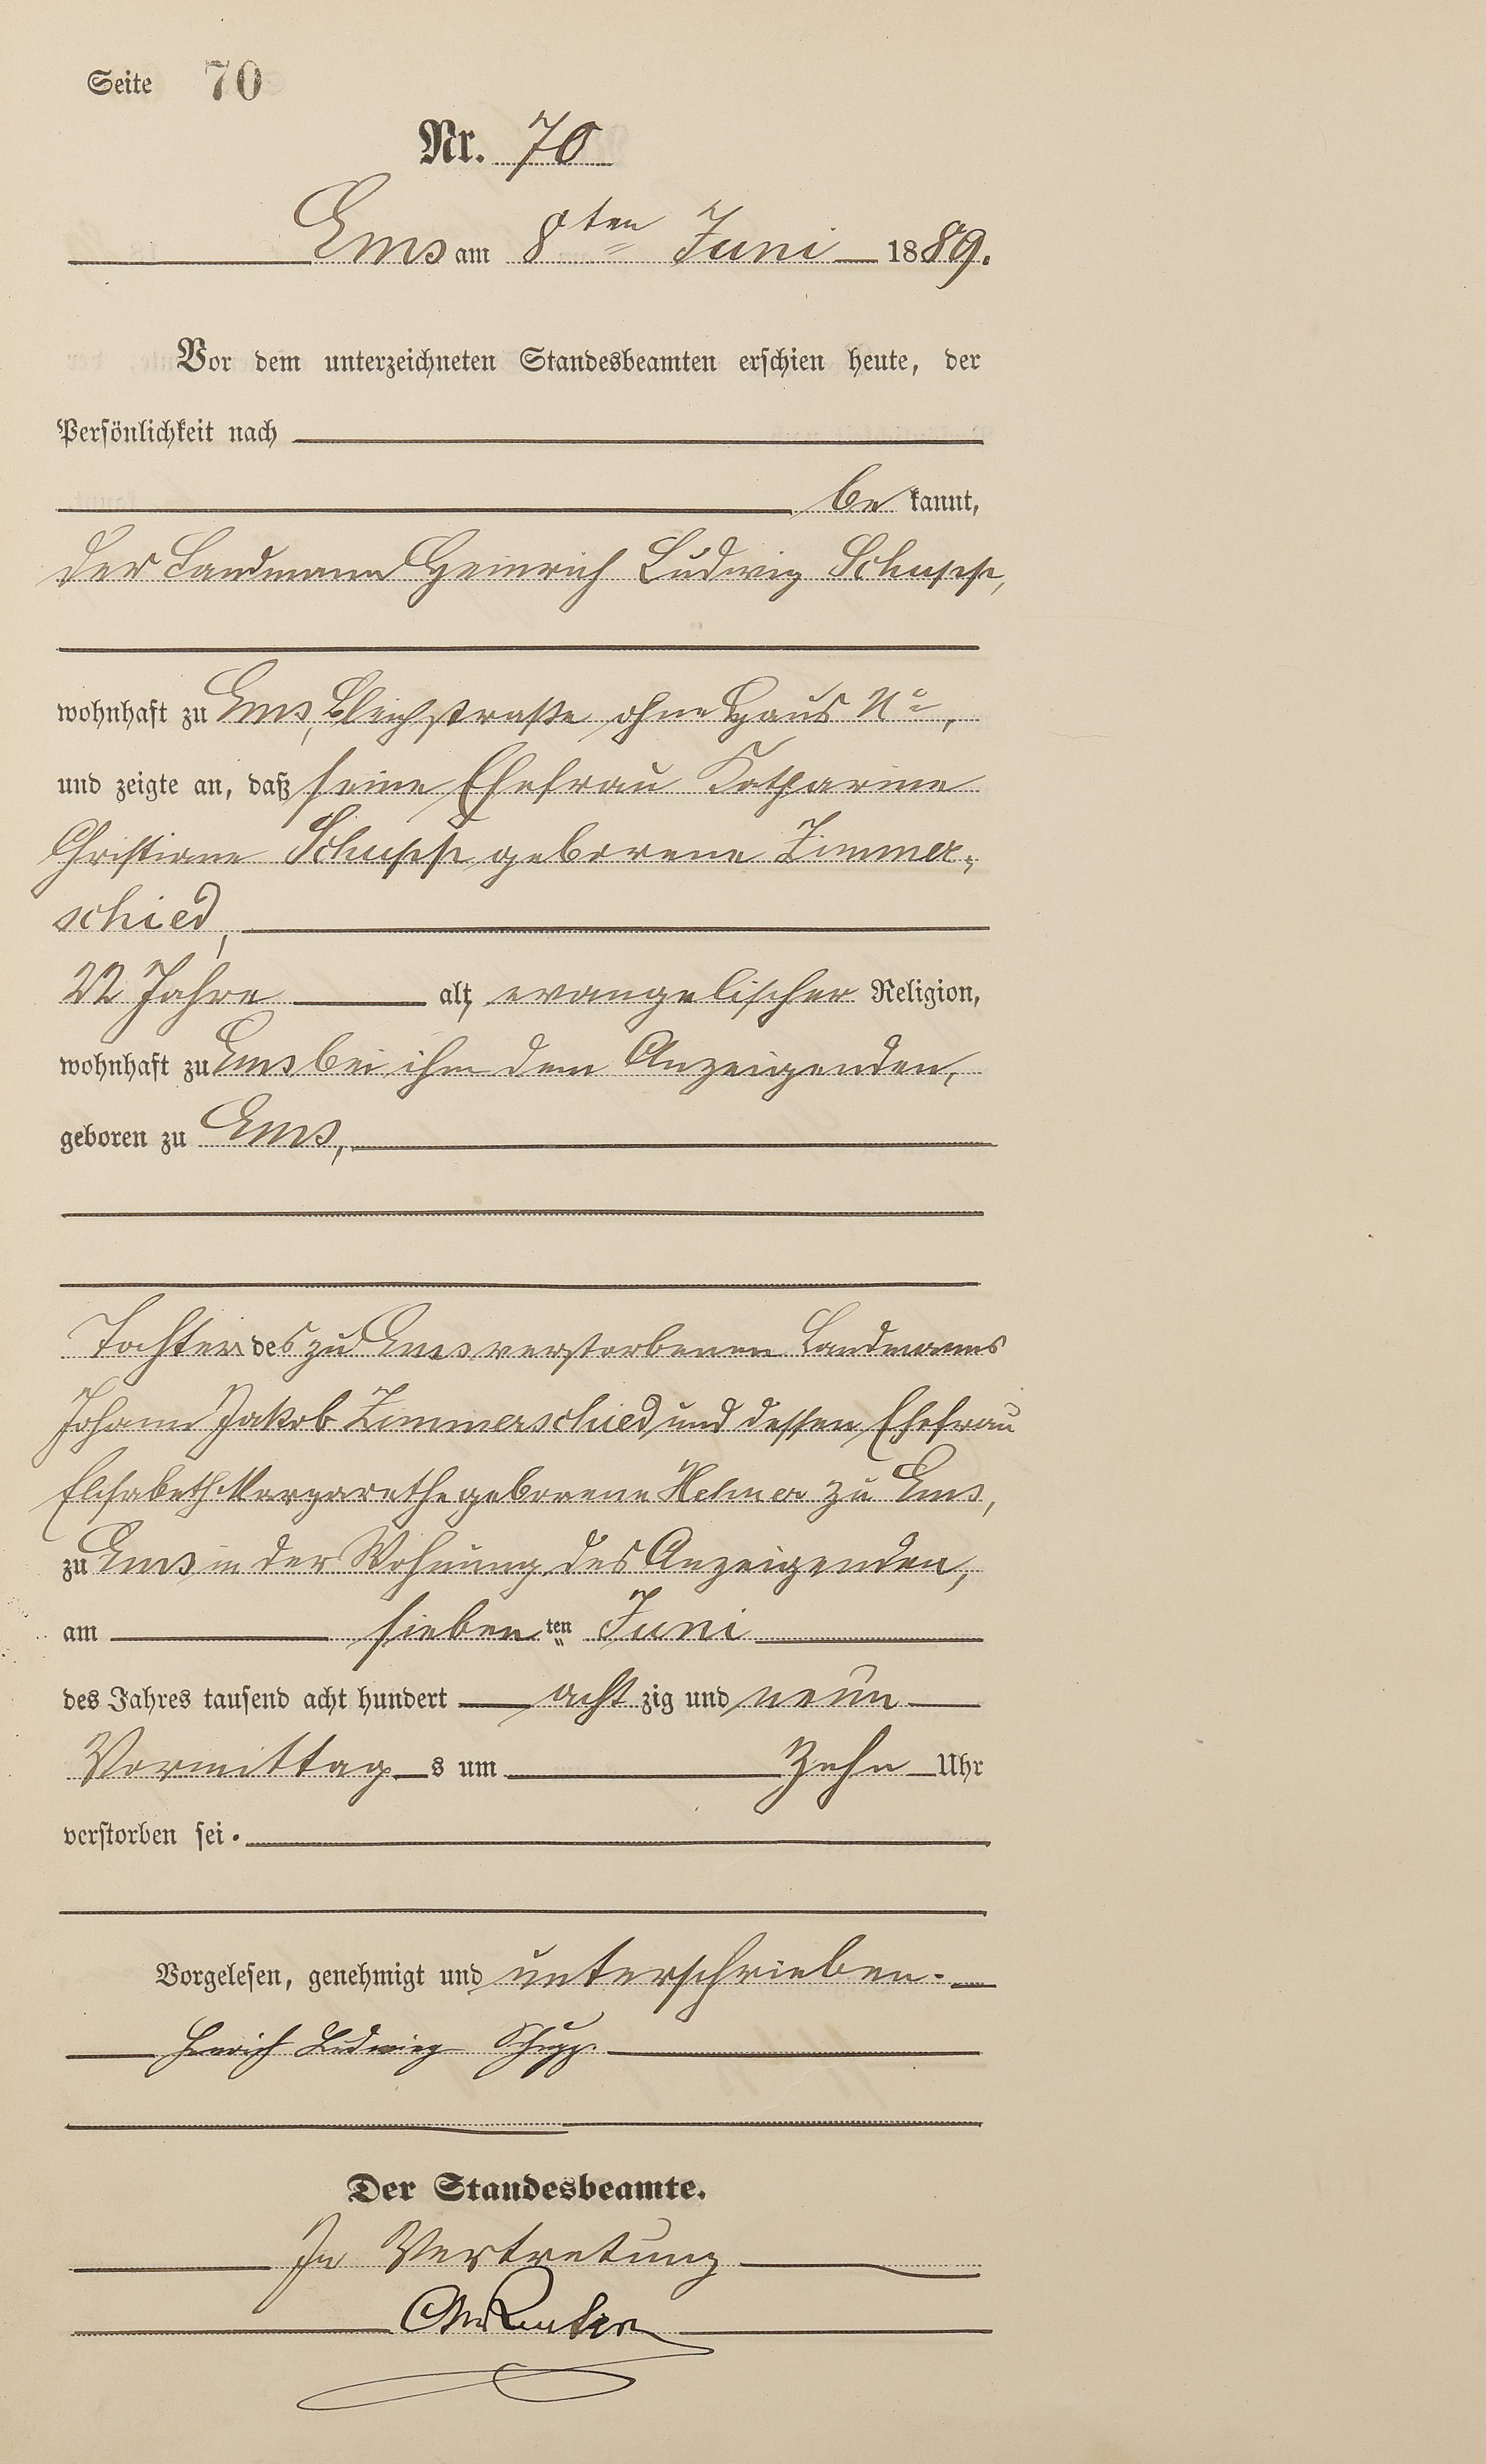 Seite 70
Nr. 70
Ems am 8ten Juni 1889.
Vor dem unterzeichneten Standesbeamten erschien heute, der
Persönlichkeit nach
be kannt,
der Landmann Heinrich Ludwig Schupp,
wohnhaft zu Ems, Bleichstraße ohne Haus No,
und zeigte an, daß seine Ehefrau Katharine
Christiane Schupp geborene Zimmer-
schied,
22 Jahre alt, evangelischer Religion,
wohnhaft zu Ems bei ihm dem Anzeigenden,
geboren zu Ems,
Tochter des zu Ems verstorbenen Landmanns
Johann Jakob Zimmerschied und dessen Ehefrau
Elisabeth Margarethe geborene zu Ems,
zu Ems in der Wohnung des Anzeigenden,
am sieben ten Juni
des Jahres tausend acht hundert acht zig und neun
Vormittag s um Zehn Uhr
verstorben sei.
Vorgelesen, genehmigt und unterschrieben.
Henrich Ludwig Schupp.
Der Standesbeamte.
In Vertretung